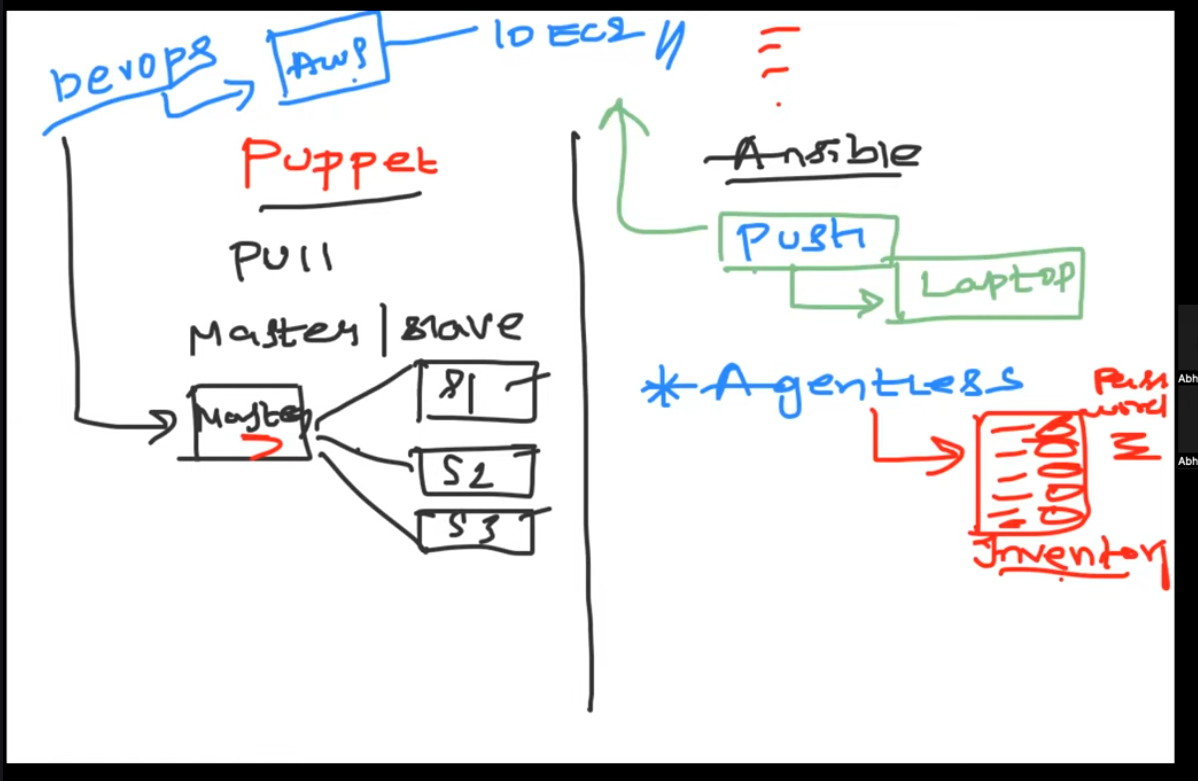 Devops
AWS
10 EC2
Puppet
Pull
Master | slave
Master
S1
S2
S3
Ansible
Push
Laptop
* Agentless
Pass
word
Inventory
Abh
Abh